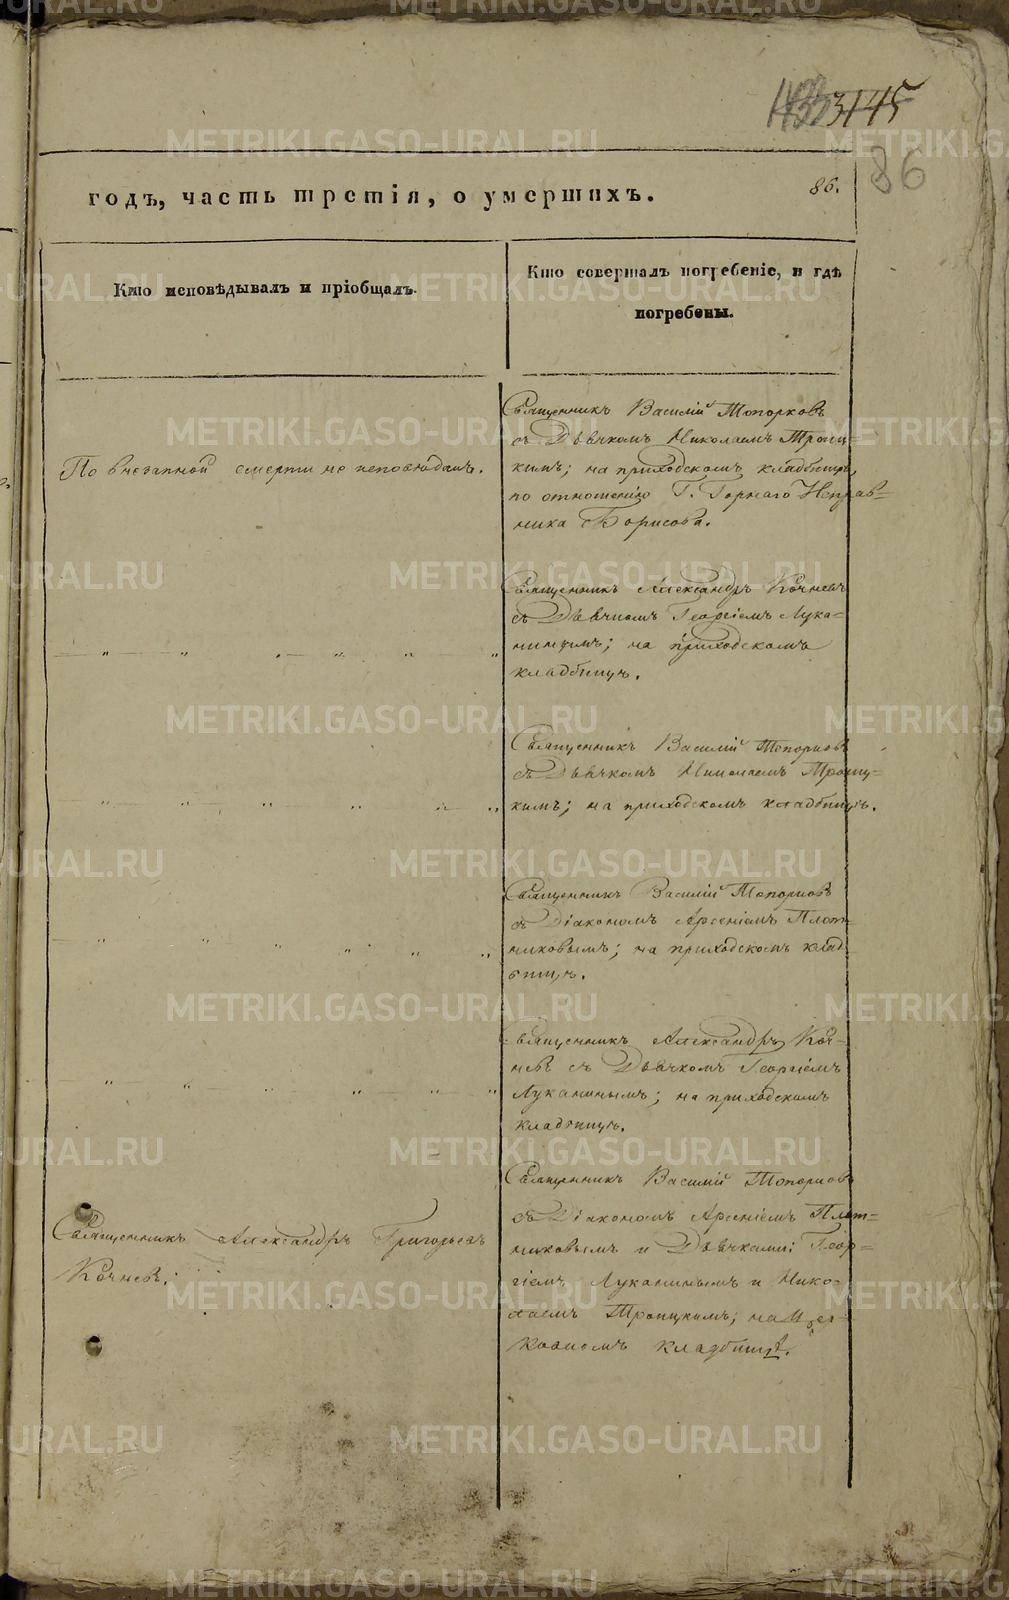 3145
86
годъ, часть третія, о умершихъ.
86.
Кто исповѣдывалъ и пріобщалъ.
Кто совершалъ погребеніе, и гдѣ
погребены.
По внезапной смерти не исповѣданъ.
Священникъ Василій Топорковъ
съ Дьячкомъ Николаемъ Троиц-
кимъ; на приходскомъ кладбищѣ,
по отношенію Г. Горнаго Исправ-
ника Борисова.
Священникъ Александръ Кочневъ
съ Дьячкомъ Георгіемъ Лука-
нинымъ; на приходскомъ
кладбищѣ.
Священникъ Василій Топорковъ
съ Дьячкомъ Николаемъ Троиц-
кимъ; на приходскомъ кладбищѣ.
Священникъ Василій Топорковъ
съ Діакономъ Арсеніемъ Плот-
никовымъ; на приходскомъ клад-
бищѣ.
Священникъ Александръ Коч-
невъ съ Дьячкомъ Георгіемъ
Луканинымъ; на приходскомъ
кладбищѣ.
Священникъ Александръ Григорьевъ
Кочневъ.
Священникъ Василій Топорковъ
съ Діакономъ Арсеніемъ Плот-
никовымъ и Дьячками: Геор-
гіемъ Луканинымъ и Нико-
лаемъ Троицкимъ; на Цер-
ковномъ кладбищѣ.
METRIKI.GASO-URAL.RU